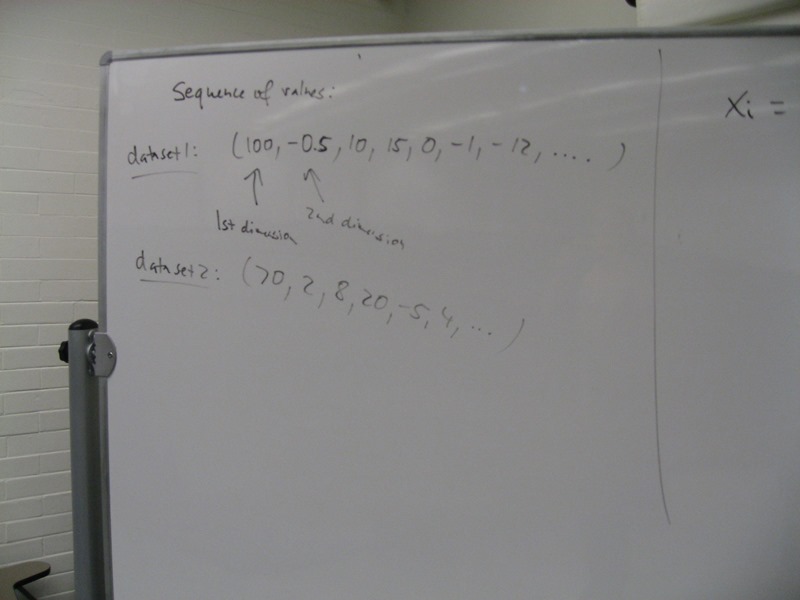 Sequence of values:
dataset1: (100, -0.5, 10, 15, 0, -1, -12, .... )
1st dimension
2nd dimension
dataset2: (70, 2, 8, 20, -5, 4, ... )
Xi =